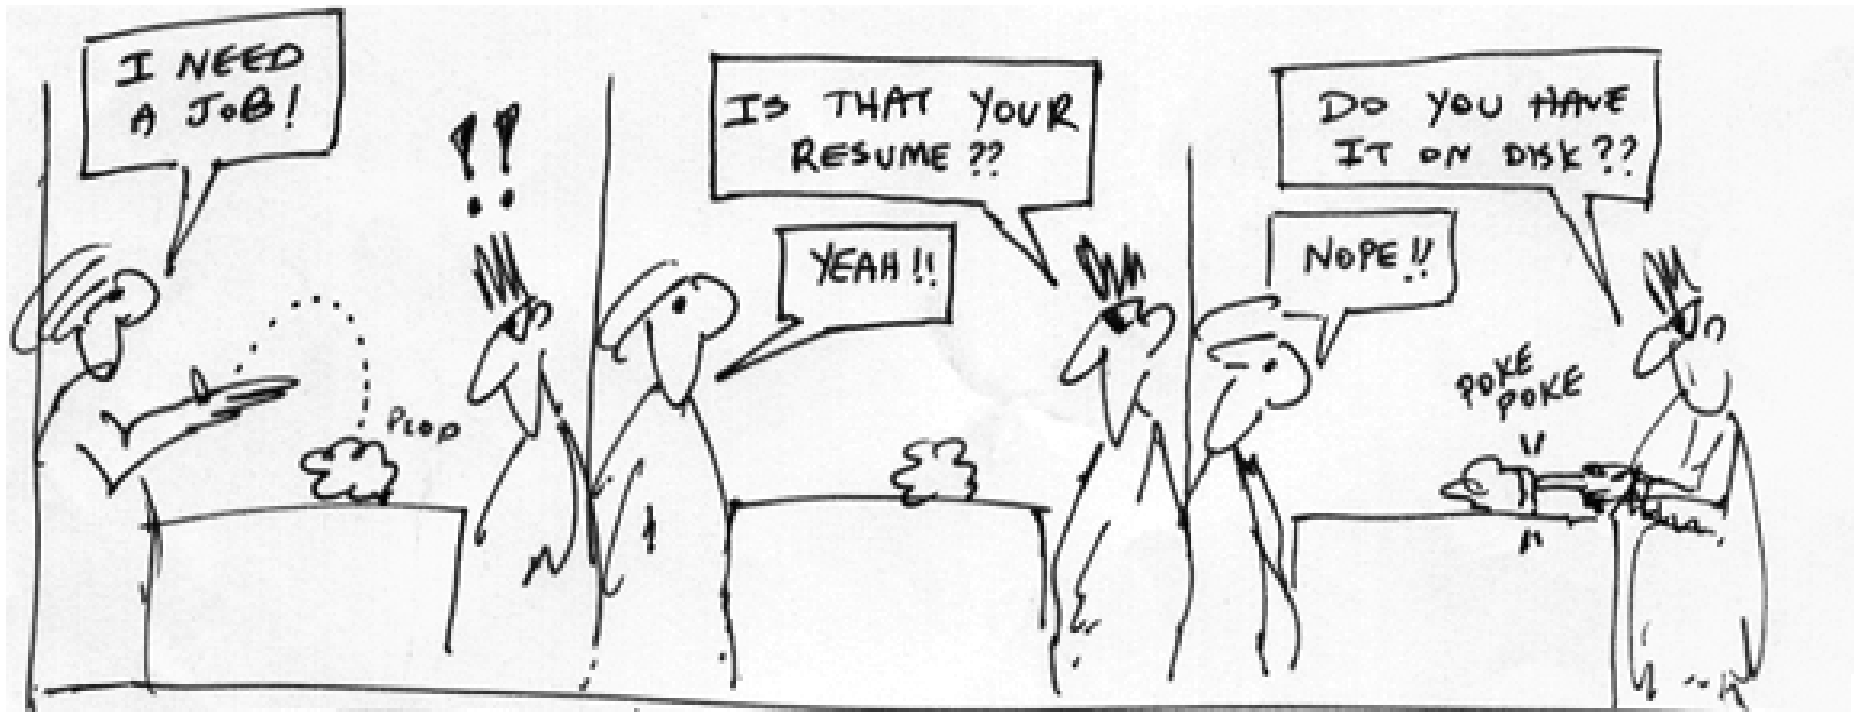 I NEED
A JOB!
!!
PLOP
IS THAT YOUR
RESUME??
YEAH!!
DO YOU HAVE
IT ON DISK??
NOPE!!
POKE
POKE